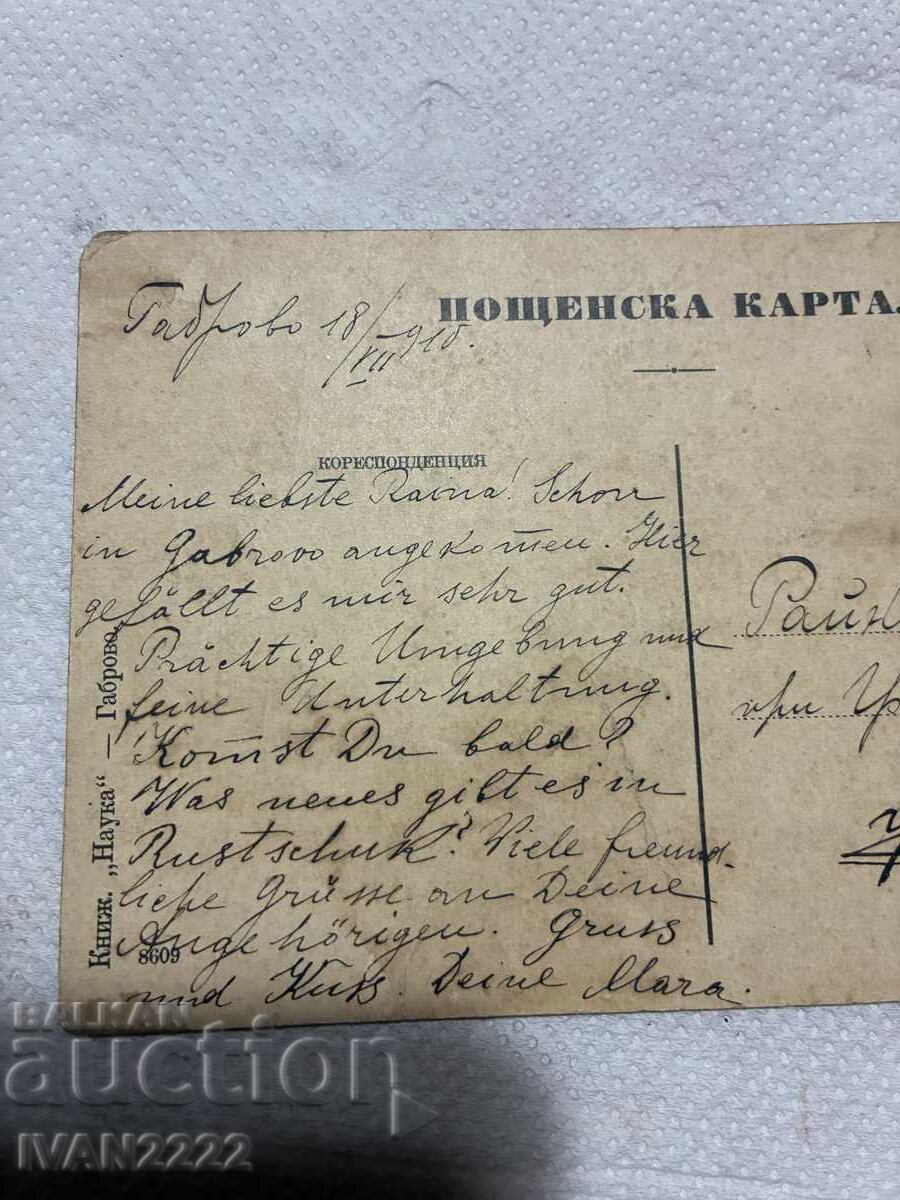 Габрово 18/VII 910.
ПОЩЕНСКА КАРТА.
КОРЕСПОНДЕНЦИЯ
Meine liebste Raina! Schon
in Gabrovo angekom̅en. Hier
gefällt es mir sehr gut.
Prächtige Umgebung und
feine Unterhaltung.
Kom̅st Du bald?
Was neues gibt es in
Rustschuk? Viele freund-
liche Grüsse an Deine
Angehörigen. Gruss
und Kuss. Deine Mara.
Райн
при
Книж. „Наука“ — Габрово.
8609
BALKAN
auction
IVAN2222